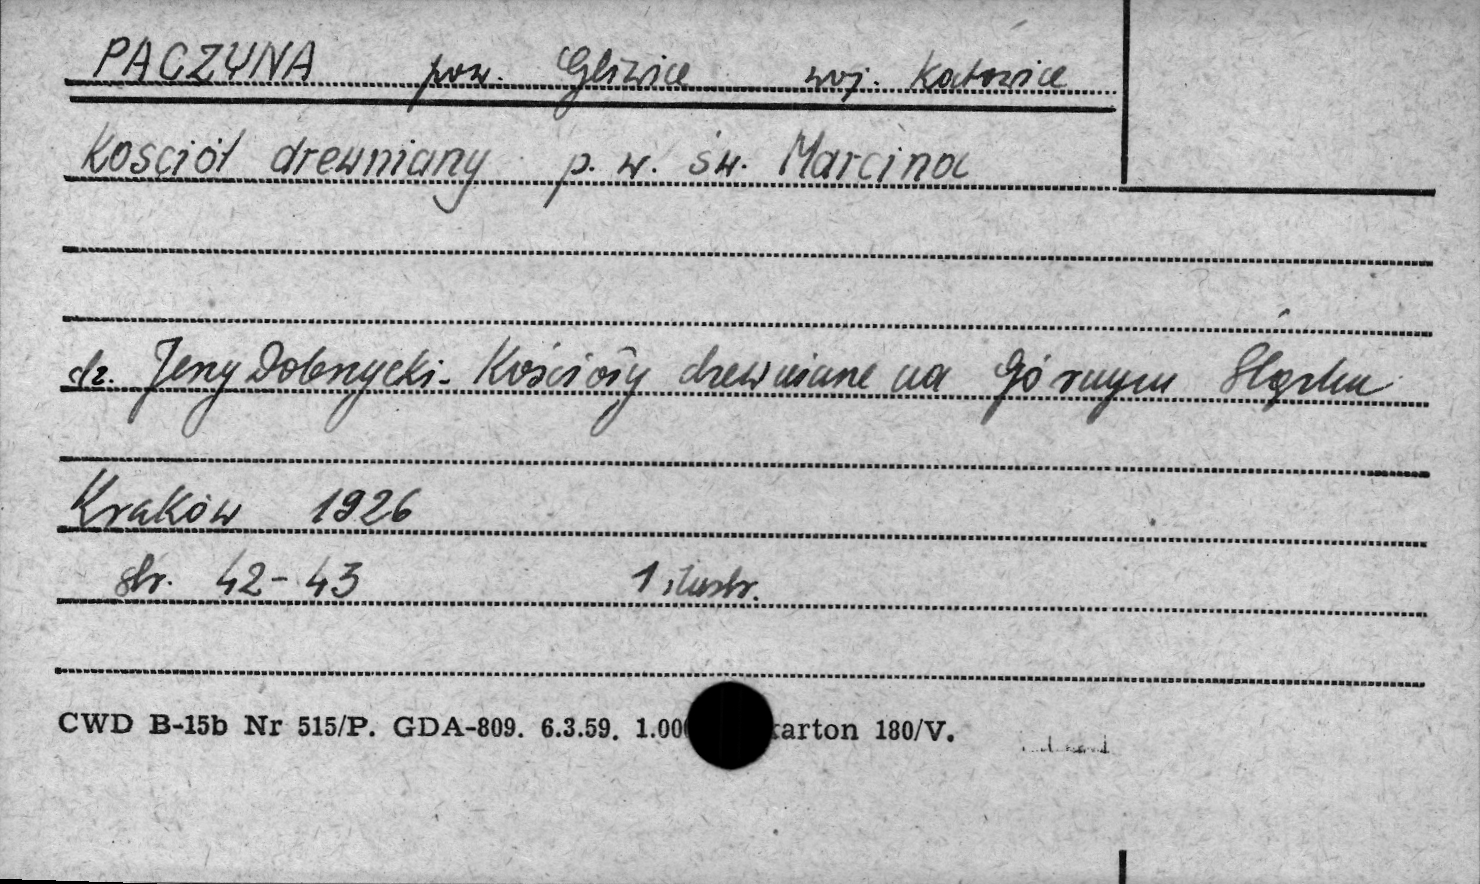 PACZYNA pow. Gliwice woj. Katowice
Kościół drewniany p. w. św. Marcina
dr. Jerzy Dobrzycki - Kościoły drewniane na Górnym Śląsku
Kraków 1926
str. 42-43 1 ilustr.
CWD B-15b Nr 515/P. GDA-809. 6.3.59. karton 180/V.